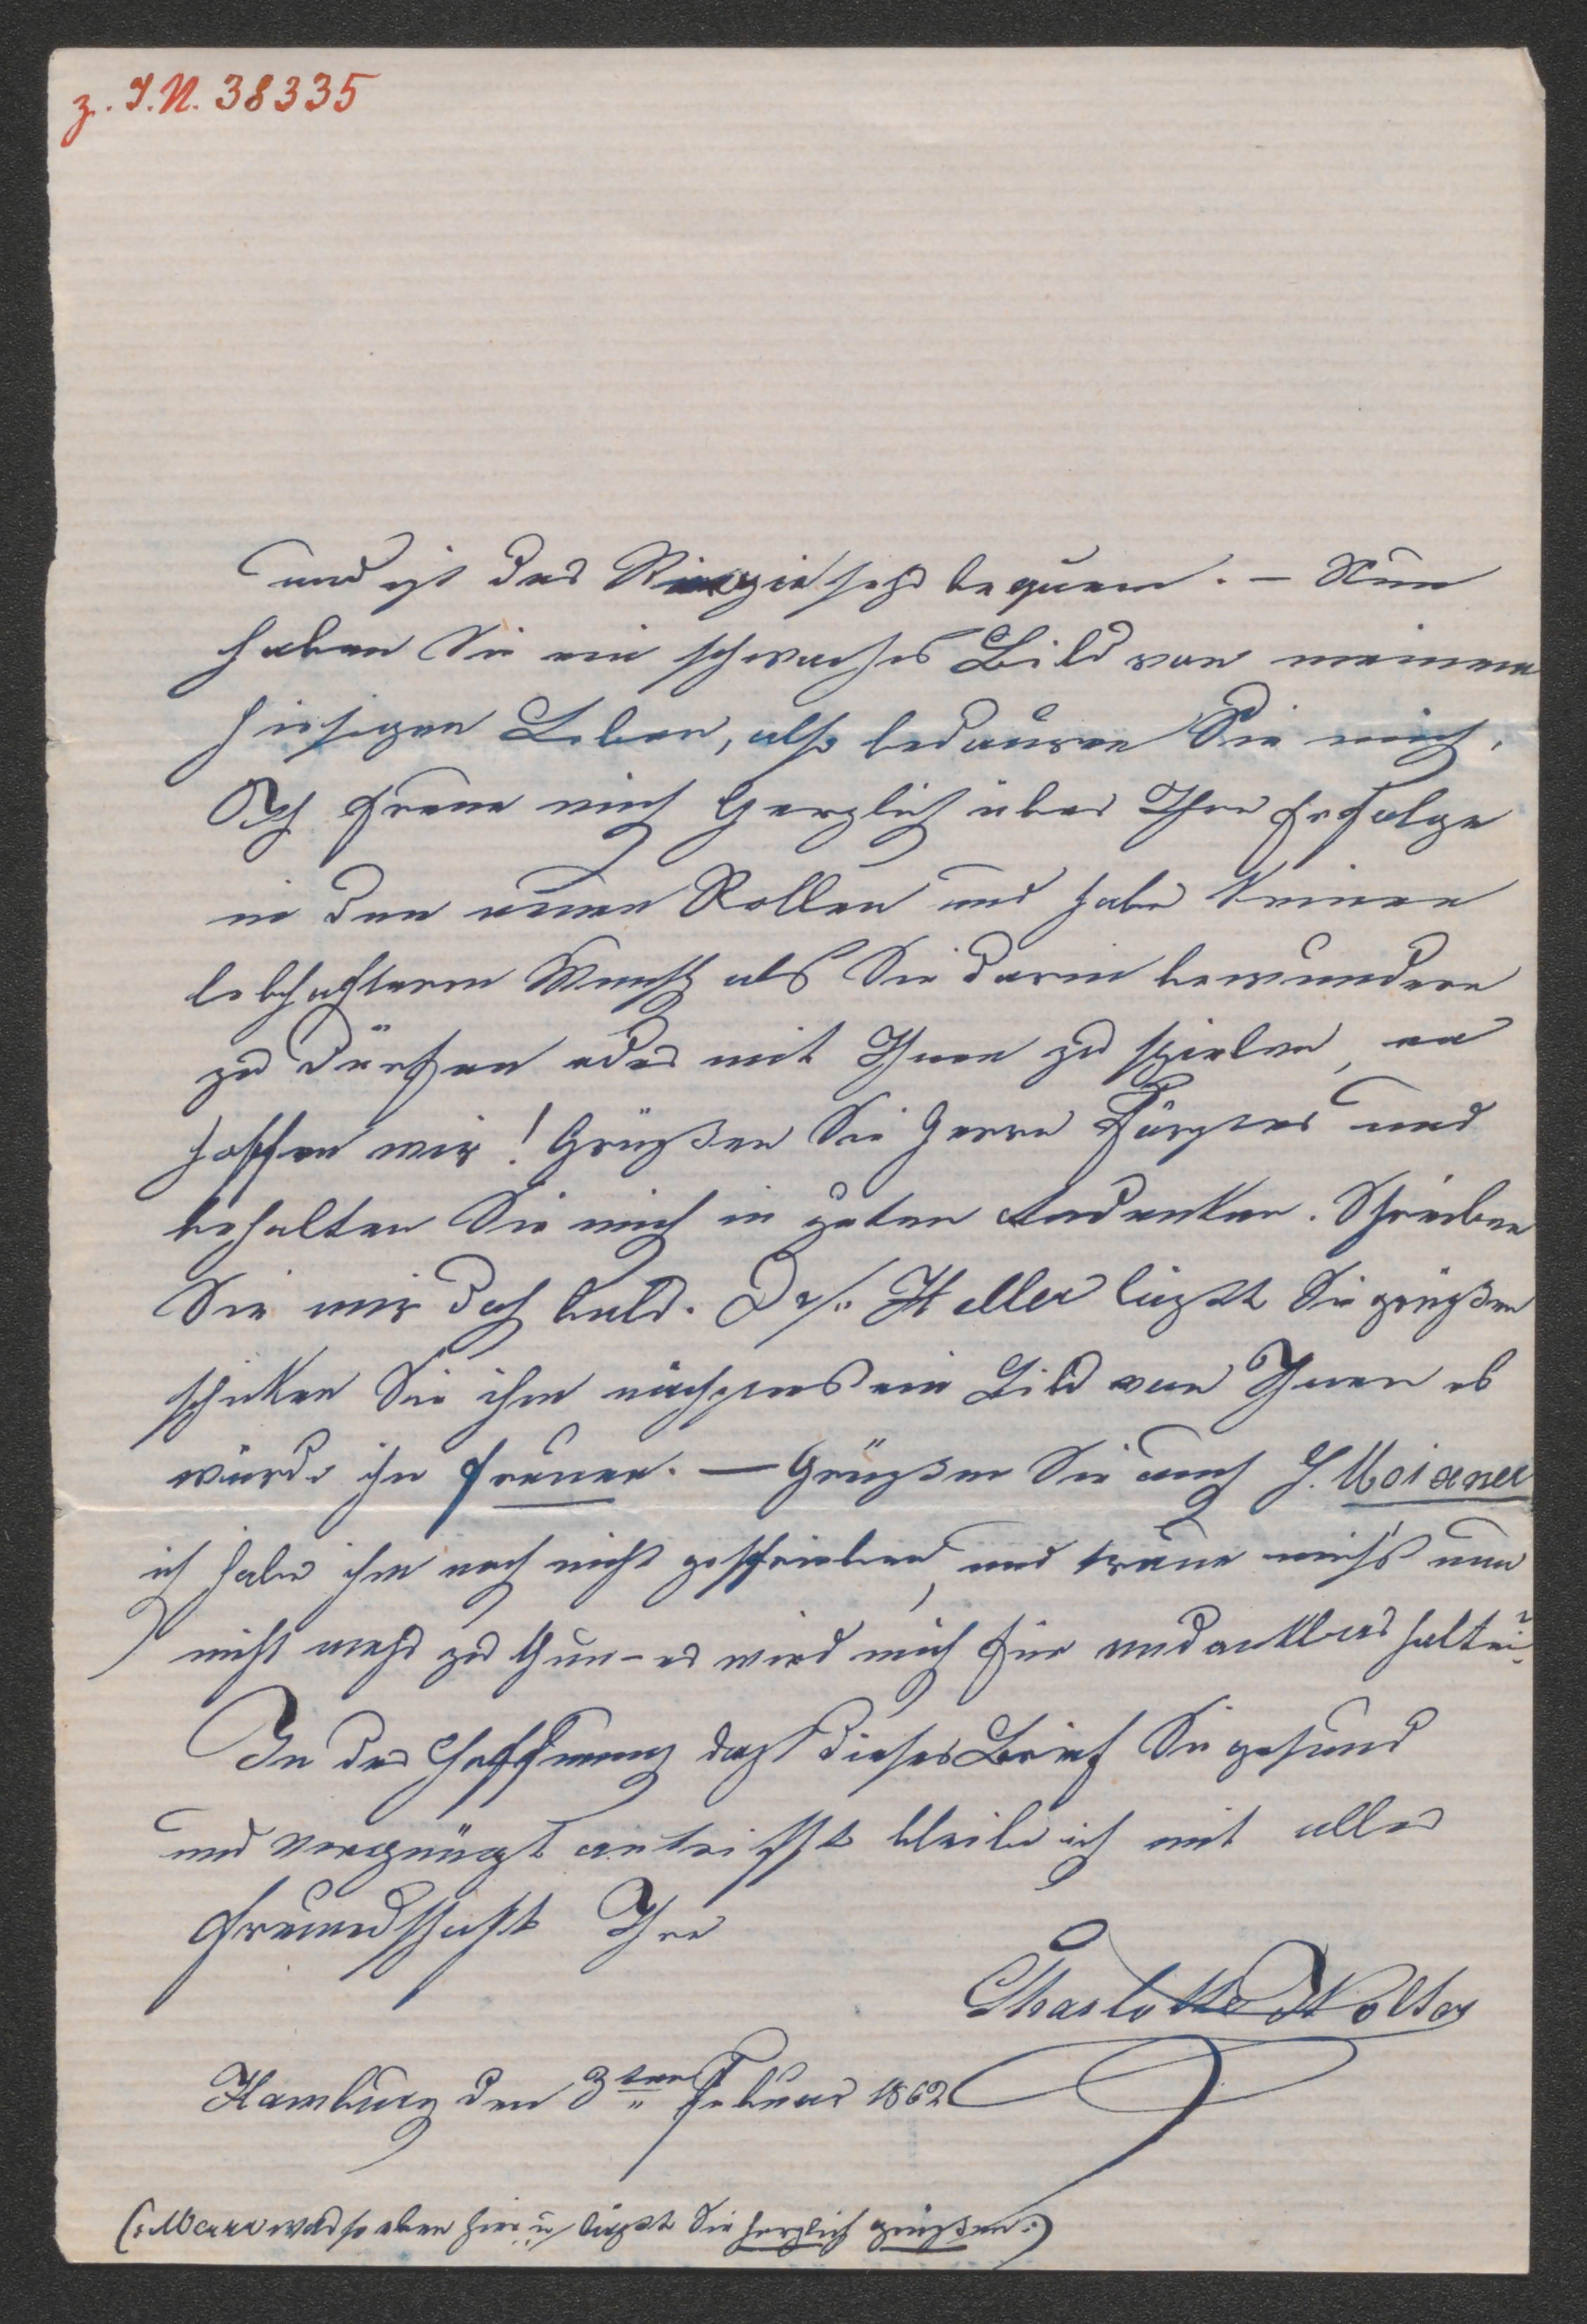 z. I.N. 38335
und ist das sehr bequem. – Nun
haben Sie ein schwaches Bild von meinem
hiesigen Leben, also bedauren Sie mich.
Ich freue mich herzlich über Ihre Erfolge
in den neuen Rollen und habe keinen
lebhafteren Wunsch als Sie darin bewundern
zu dürfen oder mit Ihnen zu spielen, na
hoffen wir! Grüßen Sie Herrn Förster und
behalten Sie mich in guten Andenken. Schreiben
Sie mir doch bald. Dr. Heller läßt Sie grüßen
schicken Sie ihm nächstens ein Bild von Ihnen es
würde ihn freuen. – Grüßen Sie auch H. Meixner
ich habe ihm noch nicht geschrieben, und traue mich's nun
nicht mehr zu thun – er wird mich für undankbar halten.
In der Hoffnung daß dieser Brief Sie gesund
und vergnügt antrifft bleibe ich mit aller
Freundschaft Ihre
Charlotte Wolter
Hamburg den 3ten Februar 1862
(: Marr war so eben hier u läßt Sie herzlich grüßen :)